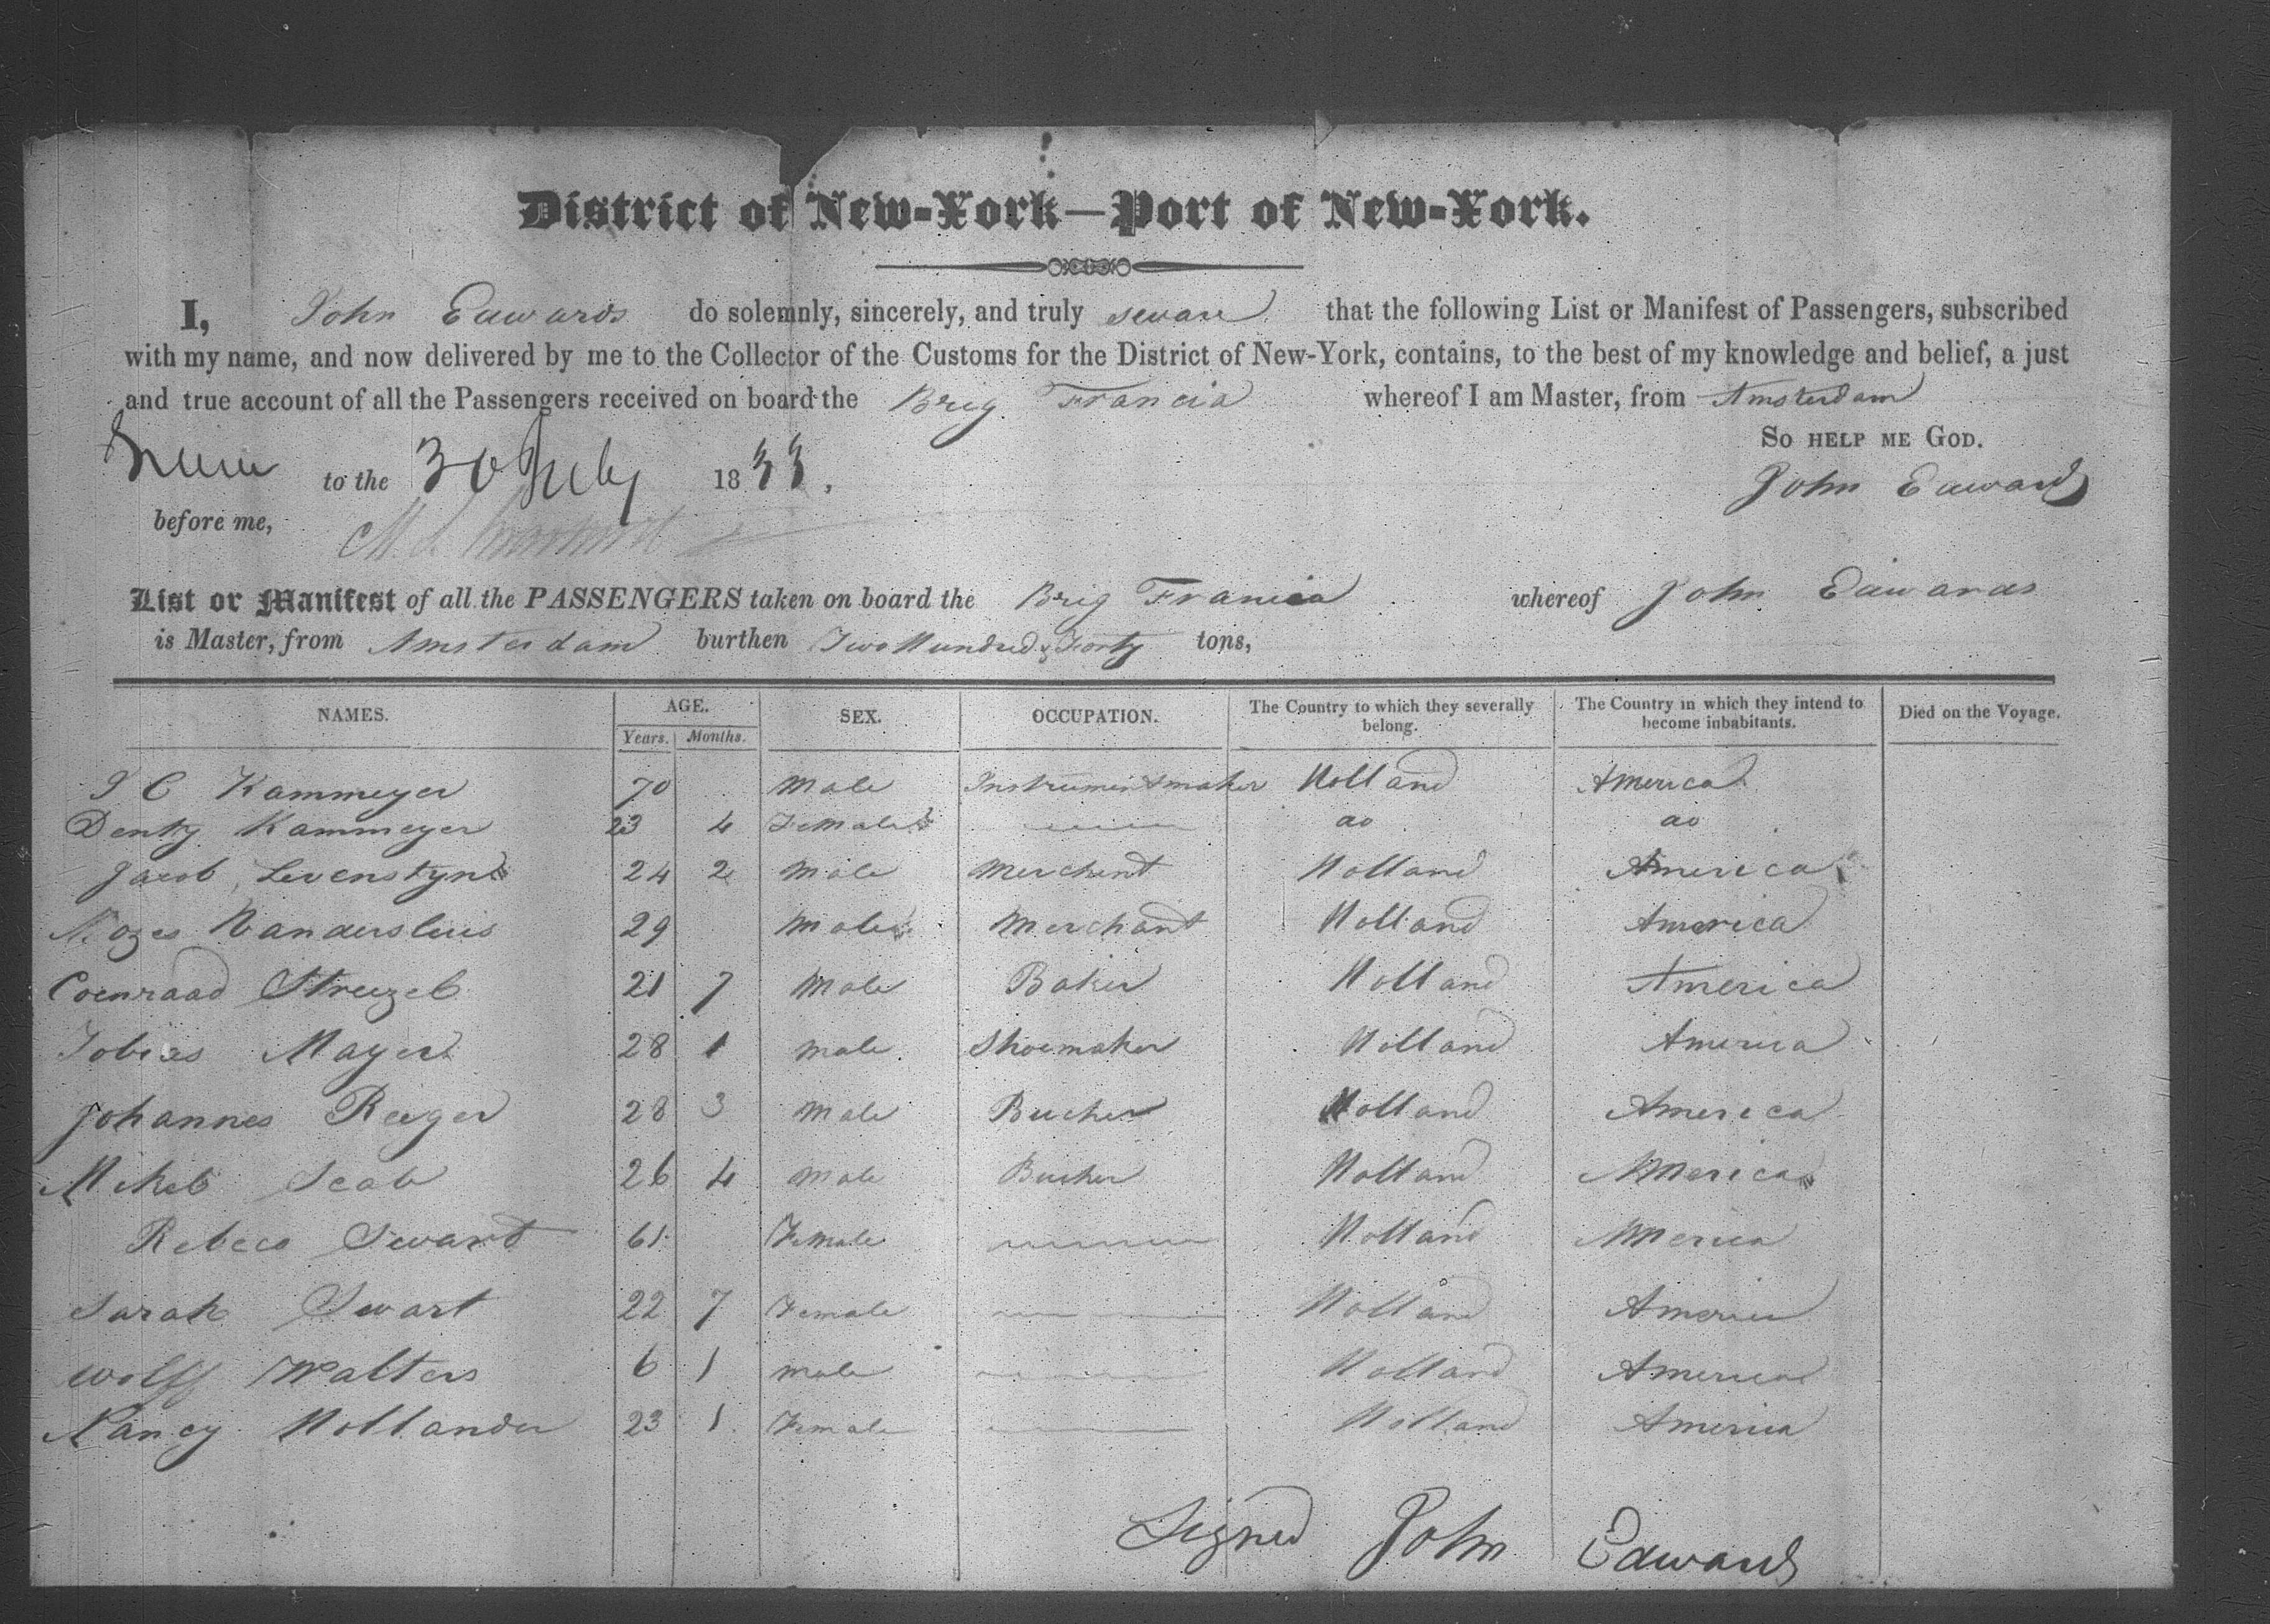 District of New-York—Port of New-York.
I, John Edwards do solemnly, sincerely, and truly sware that the following List or Manifest of Passengers, subscribed
with my name, and now delivered by me to the Collector of the Customs for the District of New-York, contains, to the best of my knowledge and belief, a just
and true account of all the Passengers received on board the Brig Francia whereof I am Master, from Amsterdam
So HELP ME GOD.
to the 30 July 1833.
John Edwards
before me,
List or Manifest of all the PASSENGERS taken on board the Brig Francia whereof John Edwards
is Master, from Amsterdam burthen Two Hundred & Forty tons,
NAMES. AGE. Years. Months. SEX. OCCUPATION. The Country to which they severally belong. The Country in which they intend to become inhabitants. Died on the Voyage.
J C Kammeyer 70 Male Instrumentmaker Holland America
Kammeyer 23 4 Female do do
Jacob Levenstyn 24 2 Male Merchent Holland America
Mozes Vandersluis 29 Male Merchant Holland America
Coenraad Streezel 21 7 Male Baker Holland America
Tobias Mayer 28 1 male Shoemaker Holland America
Johannes Reeger 28 3 Male Bucher Holland America
26 4 Male Bucher Holland America
Rebeca Swart 61 Female Holland America
Sarah Swart 22 7 Female Holland America
Wolff Walters 6 1 male Holland America
Nancy Hollander 23 1 Female Holland America
Signed John Edwards